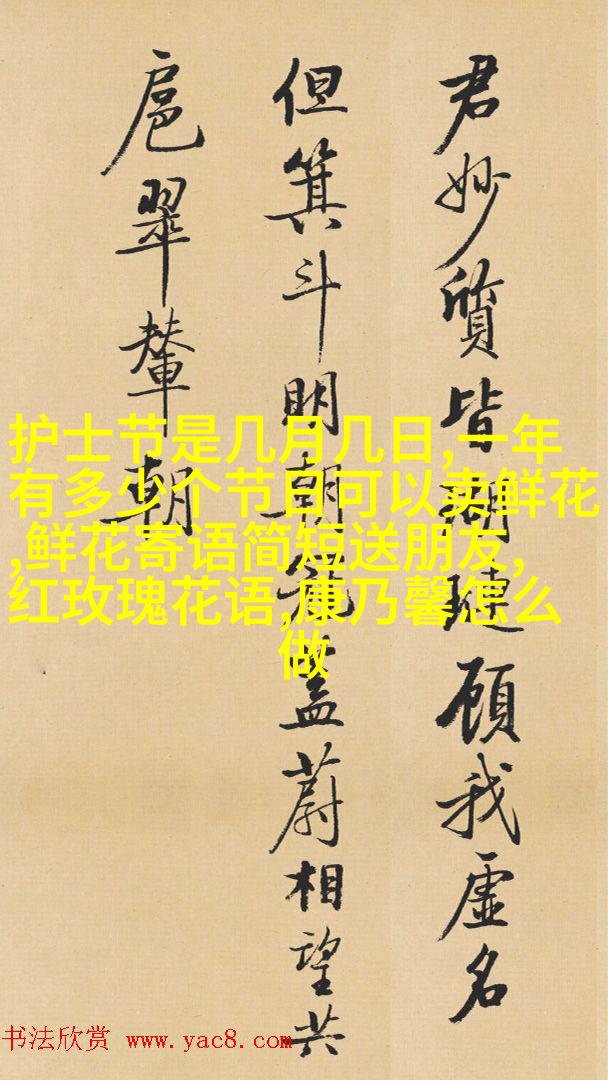 君妙質皆瑚璉顧我虛名
但箕斗明朝冠蓋蔚相望共
扈翠輦朝
护士节是几月几日,一年
有多少个节日可以卖鲜花
,鲜花寄语简短送朋友,
红玫瑰花语,康乃馨怎么
做
书法欣赏 www.yac8.com